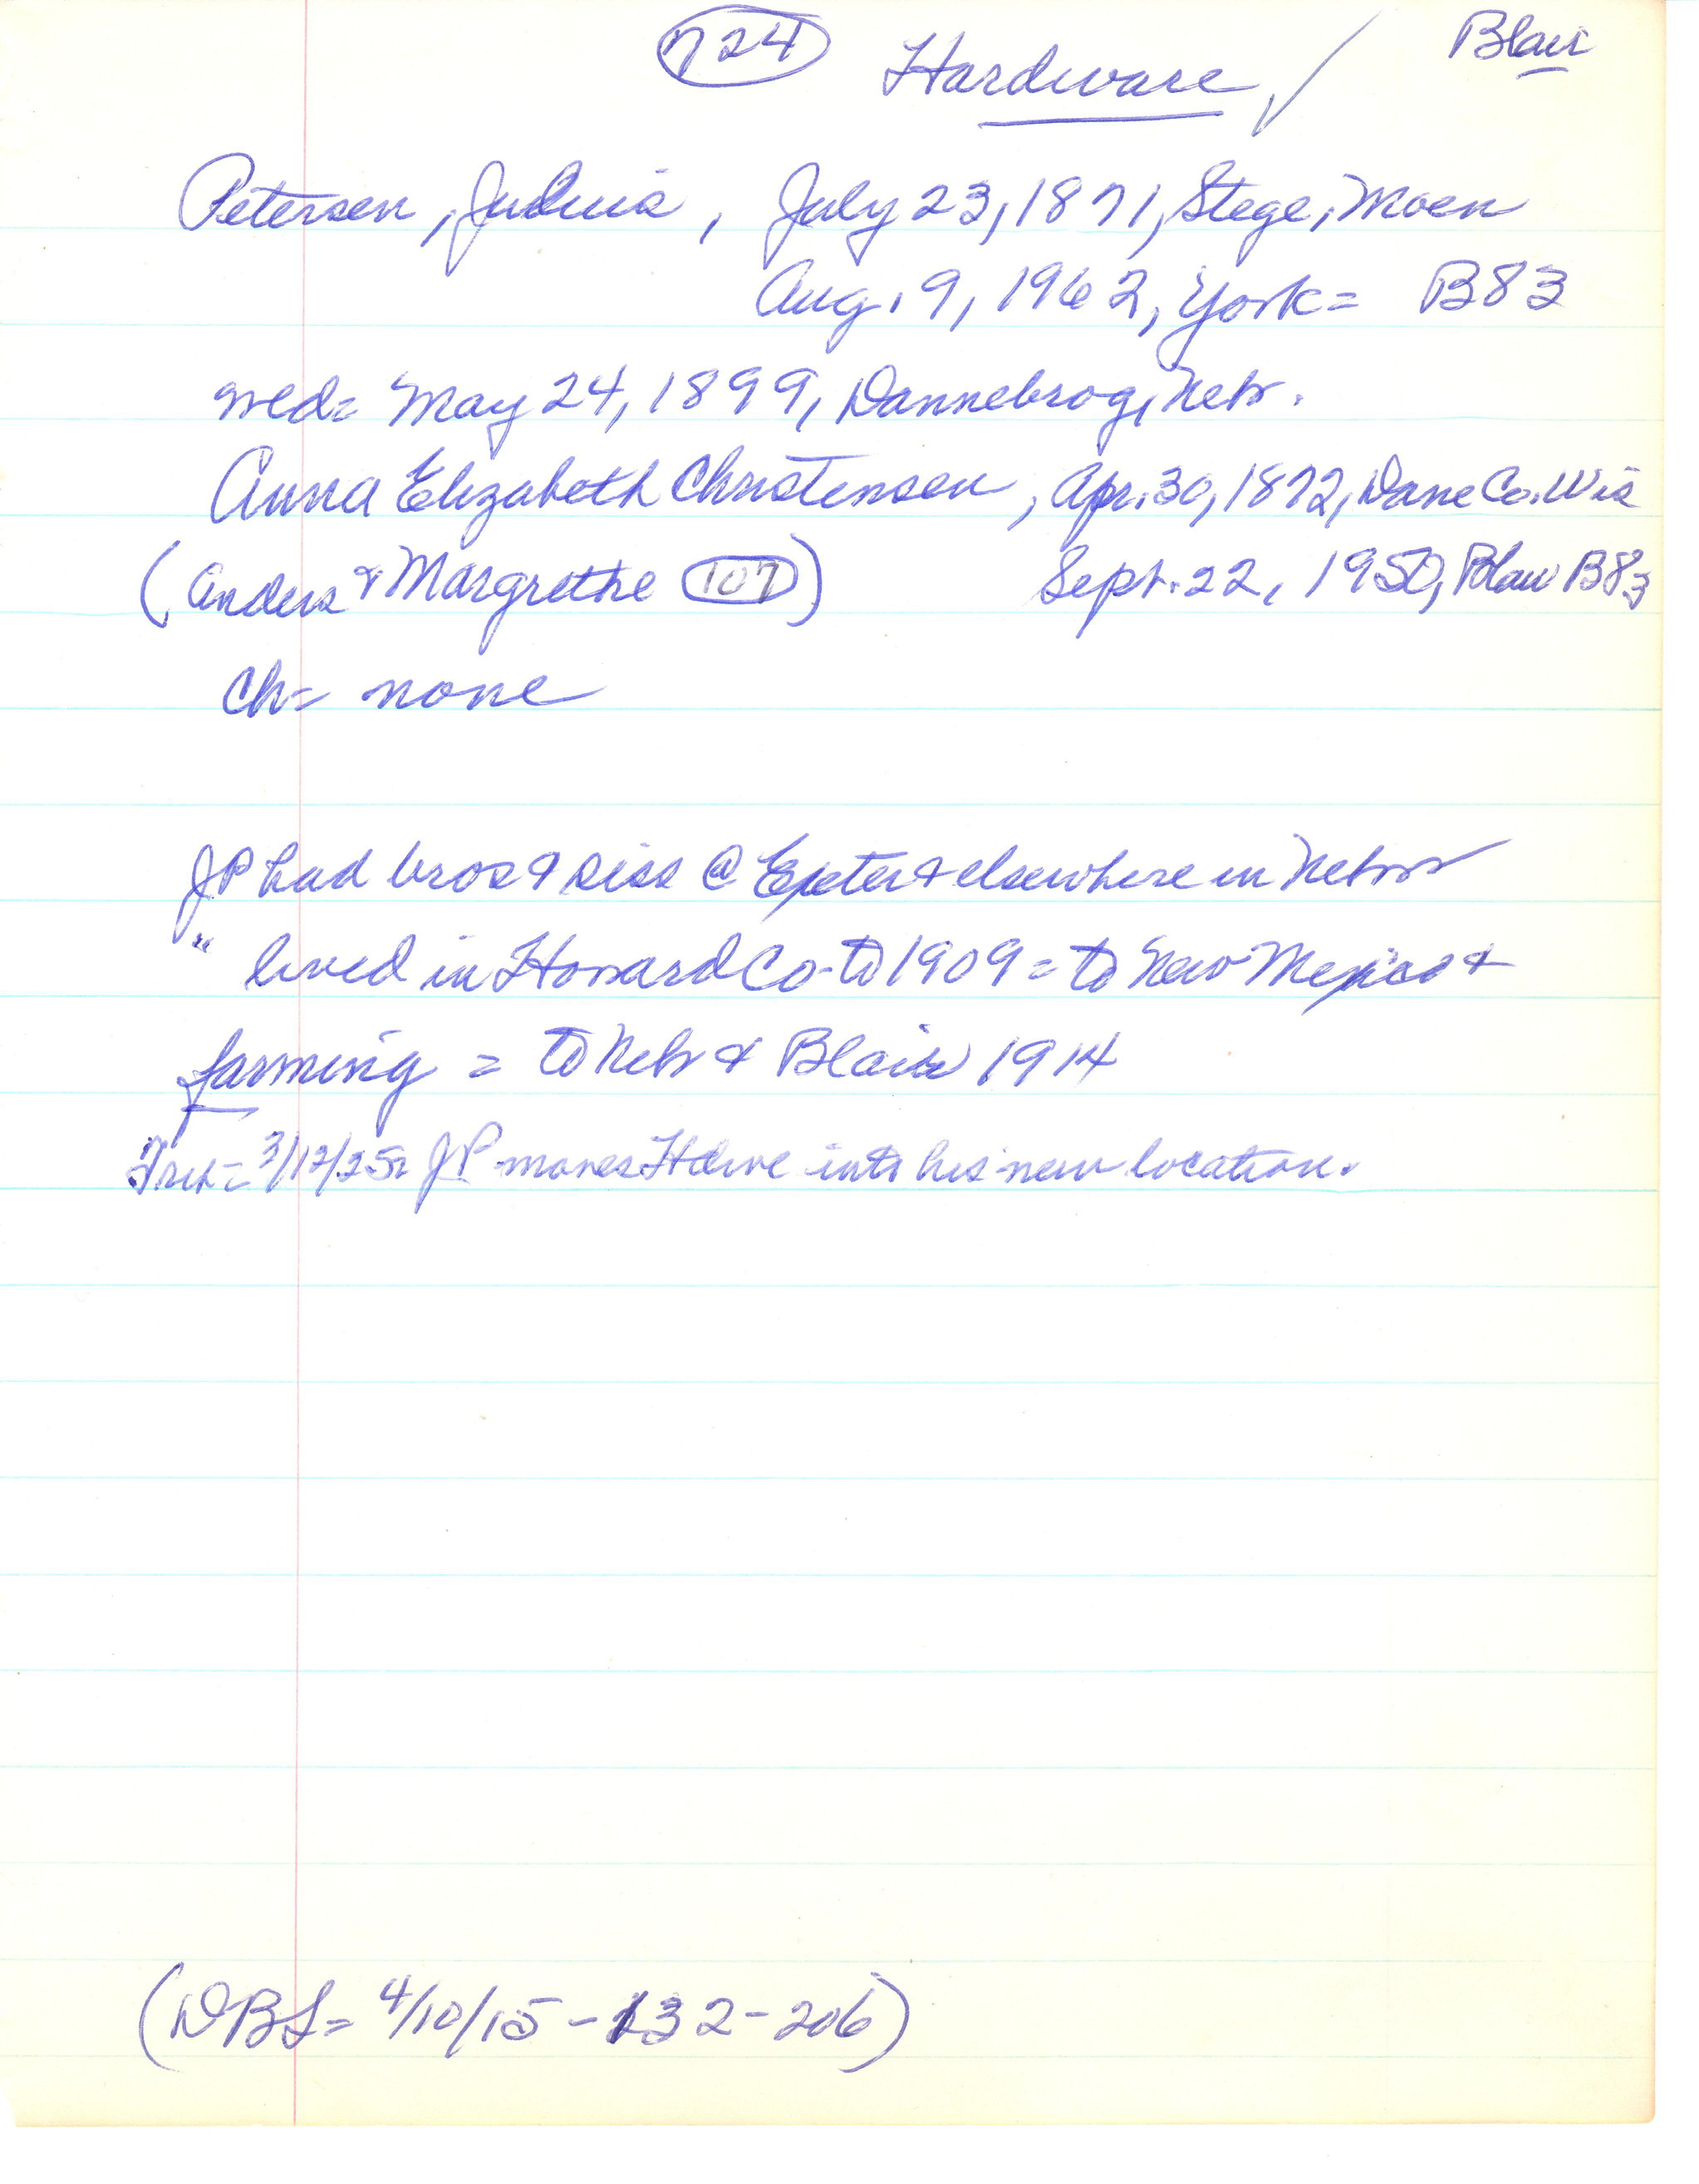 724 Hardware, ✓ Blair
Petersen, Julius, July 23, 1871, Stege, Moen
Aug. 9, 1962, York = B83
wed = May 24, 1899, Dannebrog, Nebr.
Anna Elizabeth Christensen, Apr. 30, 1872, Dane Co. Wis
(Anders & Margrethe 107) Sept. 22, 1950, Blair B83
Ch = none
JP had bros & siss @ Exeter & elsewhere in Nebr
" lived in Howard Co - to 1909 = to New Mexico &
farming = to Nebr & Blair 1914
3/12/25 = JP moves Hdwe into his new location.
(DBL = 4/10/15 - 132 - 206)